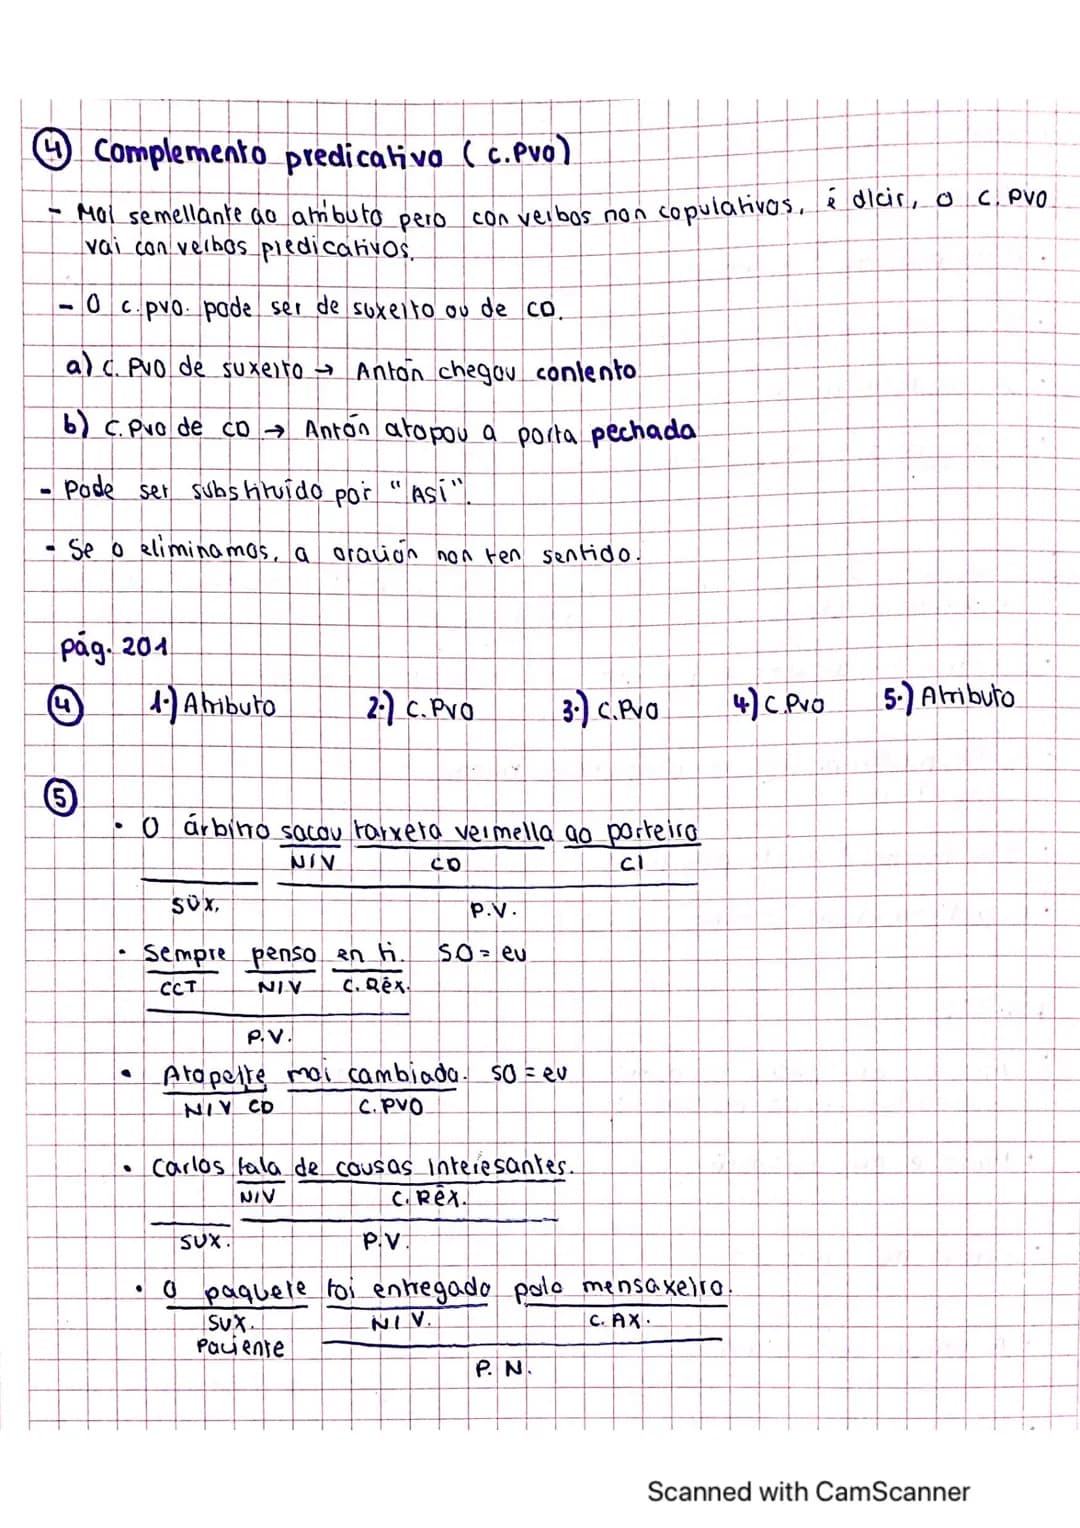 ④ Complemento predicativo (C.PVO)
- Moi semellante ao atributo pero con verbos non copulativos, é dicir, o C. PVO
vai con verbos predicativos.
- O c.pvo. pode ser de suxeito ou de CD.
a) C. PVO de suxeito → Antón chegou contento
b) C.PVO de CD → Antón atopou a porta pechada
- Pode ser substituído por "Así".
- Se o eliminamos, a oración non ten sentido.
pág. 201
④ 1.) Atributo 2.) C.PVO 3.) C.PVO 4.) C.PVO 5.) Atributo
⑤
• O árbitro sacou tarxeta vermella ao porteiro
NIV CD CI
SUX. P.V.
• Sempre penso en ti. SO = eu
CCT NIV C. Réx.
P.V.
• Atopeite moi cambiada. SO = eu
NIV CD C.PVO
• Carlos fala de cousas interesantes.
NIV C. Réx.
SUX. P.V.
• O paquete foi entregado polo mensaxeiro.
SUX. NIV. C. AX.
Paciente
P. N.
Scanned with CamScanner